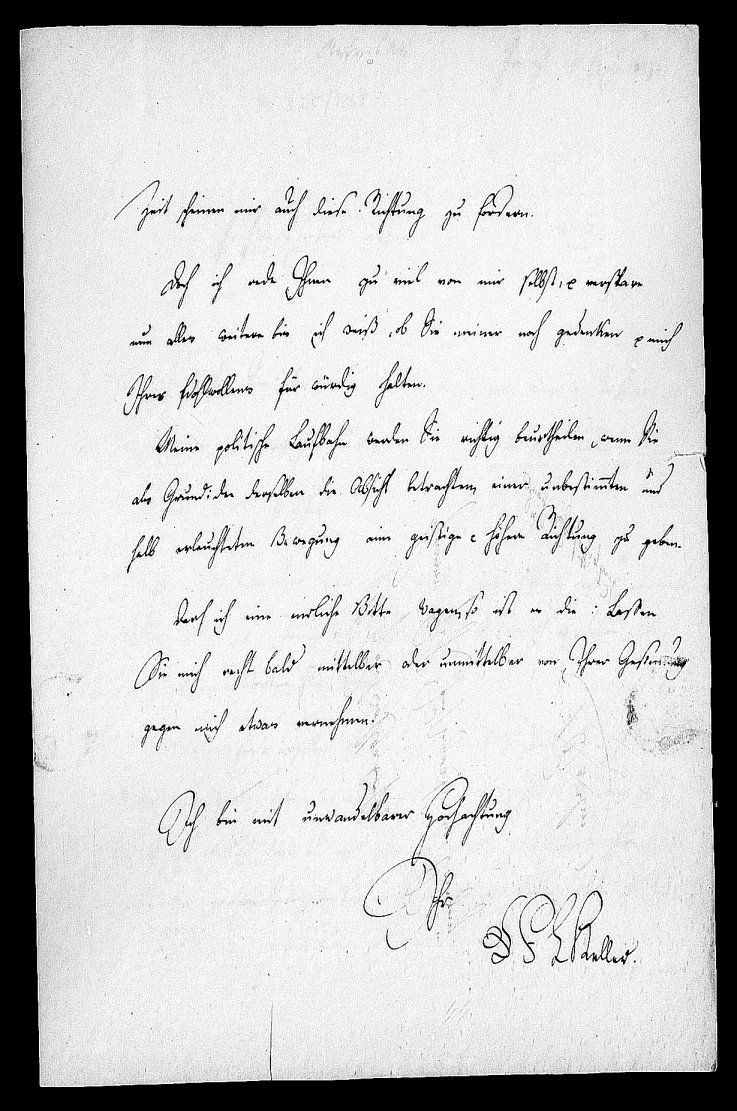 Zeit scheinen mir auch diese Richtung zu fördern.
Doch ich rede Ihnen zu viel von mir selbst, & verspare
nun alles weitere bis ich weiß, ob Sie meiner noch gedenken & mich
Ihres Wohlwollens für würdig halten.
Meine politische Laufbahn werden Sie richtig beurtheilen, wenn Sie
als Grundidee derselben die Absicht betrachten, einer unbestimmten und
halb erleuchteten Bewegung eine geistige & höhere Richtung zu geben.
Darf ich eine Bitte wagen, so ist es die: Lassen
Sie mich recht bald mittelbar oder unmittelbar von Ihrer Gesinnung
gegen mich etwas vernehmen.
Ich bin mit unwandelbarer Hochachtung
Ihr
F L Keller.